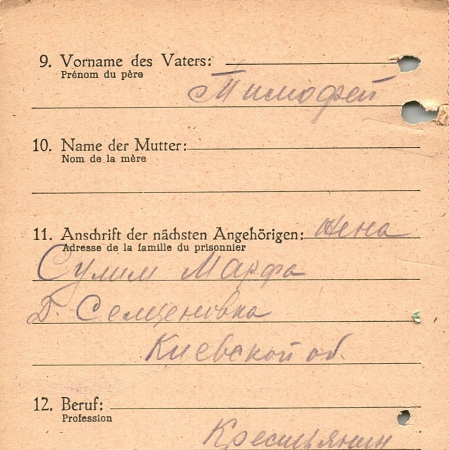 9. Vorname des Vaters:
Prénom du père
Тимофей
10. Name der Mutter:
Nom de la mère
11. Anschrift der nächsten Angehörigen: жена
Adresse de la famille du prisonnier
Сулим Марфа
Б. Семценовка
Киевской об.
12. Beruf:
Profession
Крестьянин